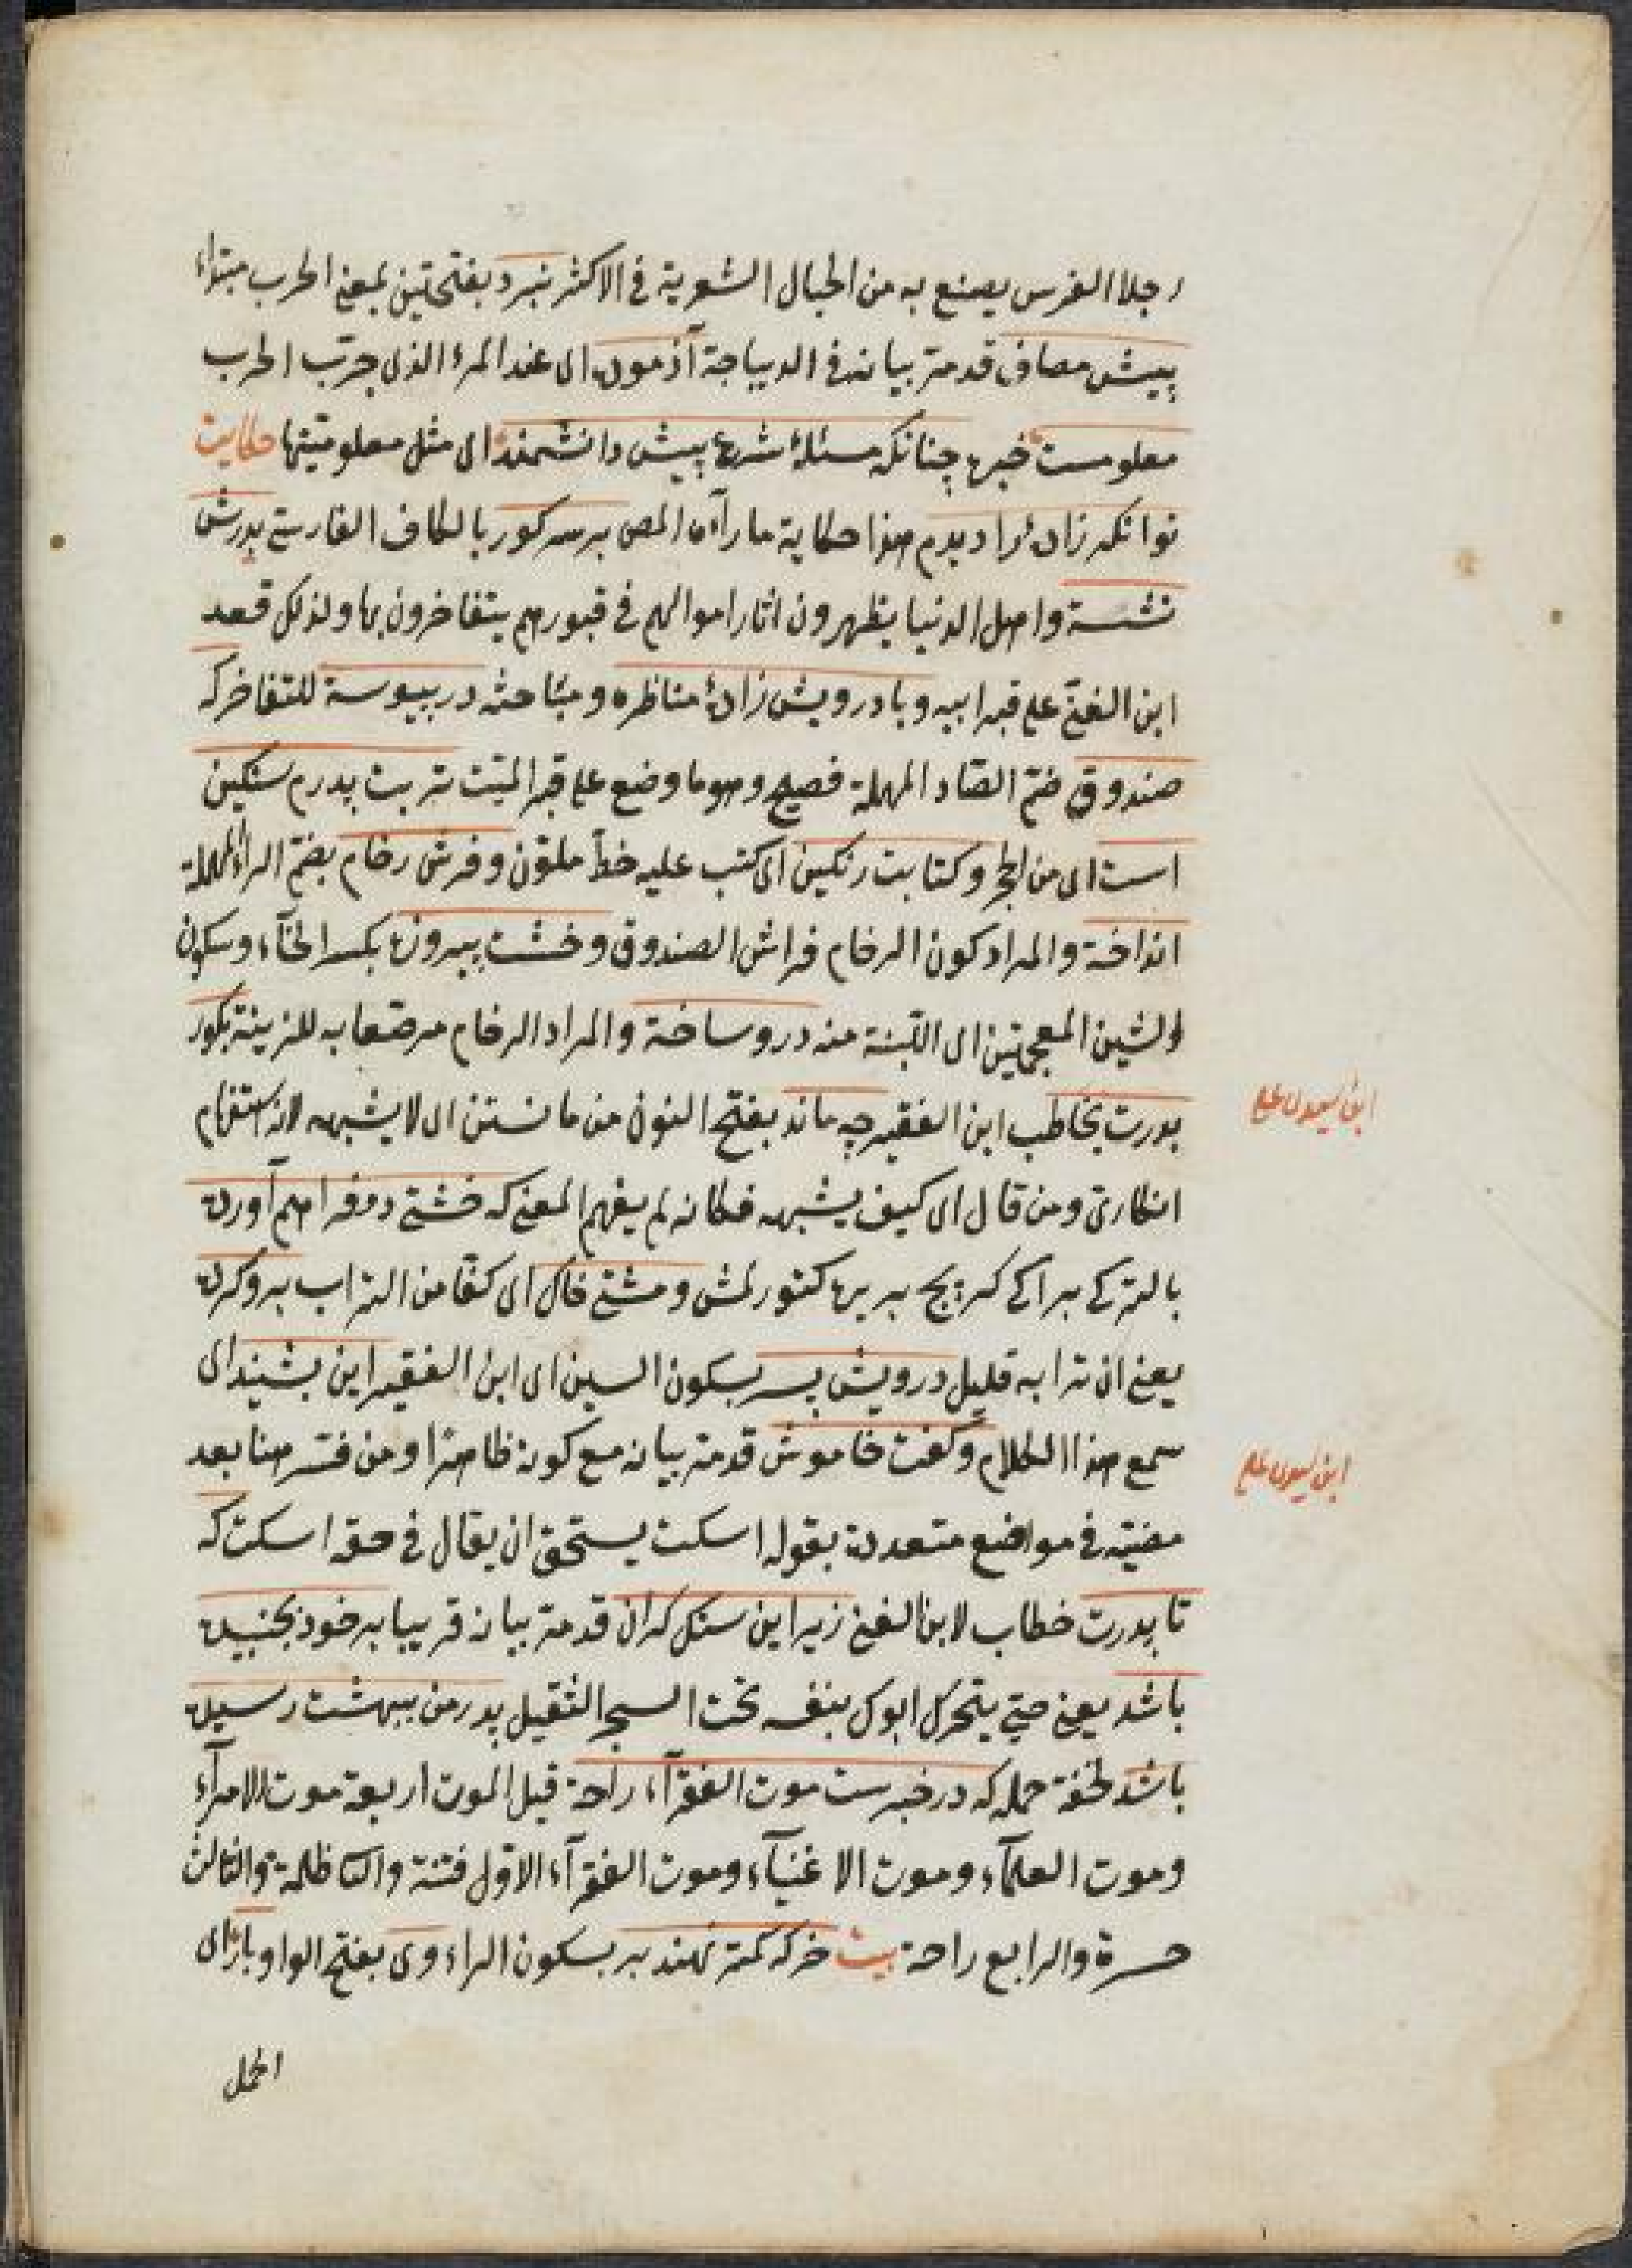 رجلا الفرس يصنع به من الحبال الشعرية فى الاكثر نبرد بفتحتين بمعنى الحرب مبتداء
پيش مصاف قد مر بيانه فى الديباجة آزموده اى عند المرء الذى جرّب الحرب
معلومست خبره چنانكه مسئلۀ شرع پيش دانشمند اى مثل معلوميتها حكايت
توانكر زادۀ را ديدم هذا حكاية ما رآه المص بر سر كور بالكاف الفارسى پدرش
نشسته واهل الدنيا يظهرون اثار اموالهم فى قبورهم يتفاخرون بها ولذلك قعد
ابن الغنى على قبر ابيه وبا درويش زادۀ مناظره ومباحثه در پيوسته للتفاخر كه
صندوق ضم الصاد المهملة فصيح وهو ما وضع على قبر الميّت تربت پدرم سنكين
است اى من الحجر وكتابت رنكين اى كتب عليه خطّ ملوّن وفرش رخام بضمّ الراء المهملة
انداخته والمراد كون الرخام فراش الصندوق وخشت پيروزه بكسر الخآء وسكون
والشين المعجمتين اى اللبنة منه درو ساخته والمراد الرخام مرصّعا به للزينة بكور
پدرت يخاطب ابن الفقير چه ماند بفتح النون من مانستن اى لا يشبهه لانه استفهام
انكارى ومن قال اى كيف يشبهه فكانه لم يفهم المعنى كه خشتى دو فراهم آورده
بالتركى بر ايكى كرپيج بر يره كتورلمش ومشتى خاك اى كفّا من التراب برو كرده
يعنى ان ترابه قليل درويش پسر بسكون السين اى ابن الفقير اين بشنيد اى
سمع هذا الكلام وكفت خاموش قد مر بيانه مع كونه ظاهرا ومن فسّر هنا بعد
مضيّه فى مواضع متعددة بقوله اسكت يستحق ان يقال فى حقه اسكت كه
تا پدرت خطاب لابن الغنى زير اين سنك كران قد مر بيانه قريبا بر خود بجنبيده
باشد يعنى حتى يتحرك ابوك بنفسه تحت الحجر الثقيل پدر من ببهشت رسيده
باشد لخفة حمله كه در خبرست موت الفقرآء راحة قيل الموت اربعة موت الامرآء
وموت العلمآء وموت الاغنيآء وموت الفقرآء الاوّل فتنة والثانى ظلمة والثالث
حسرة والرابع راحة بيت خر كه كمتر نهند بر بسكون الراء وى بفتح الواو بار اى
الحمل
ابن سيد على
ابن سيد على